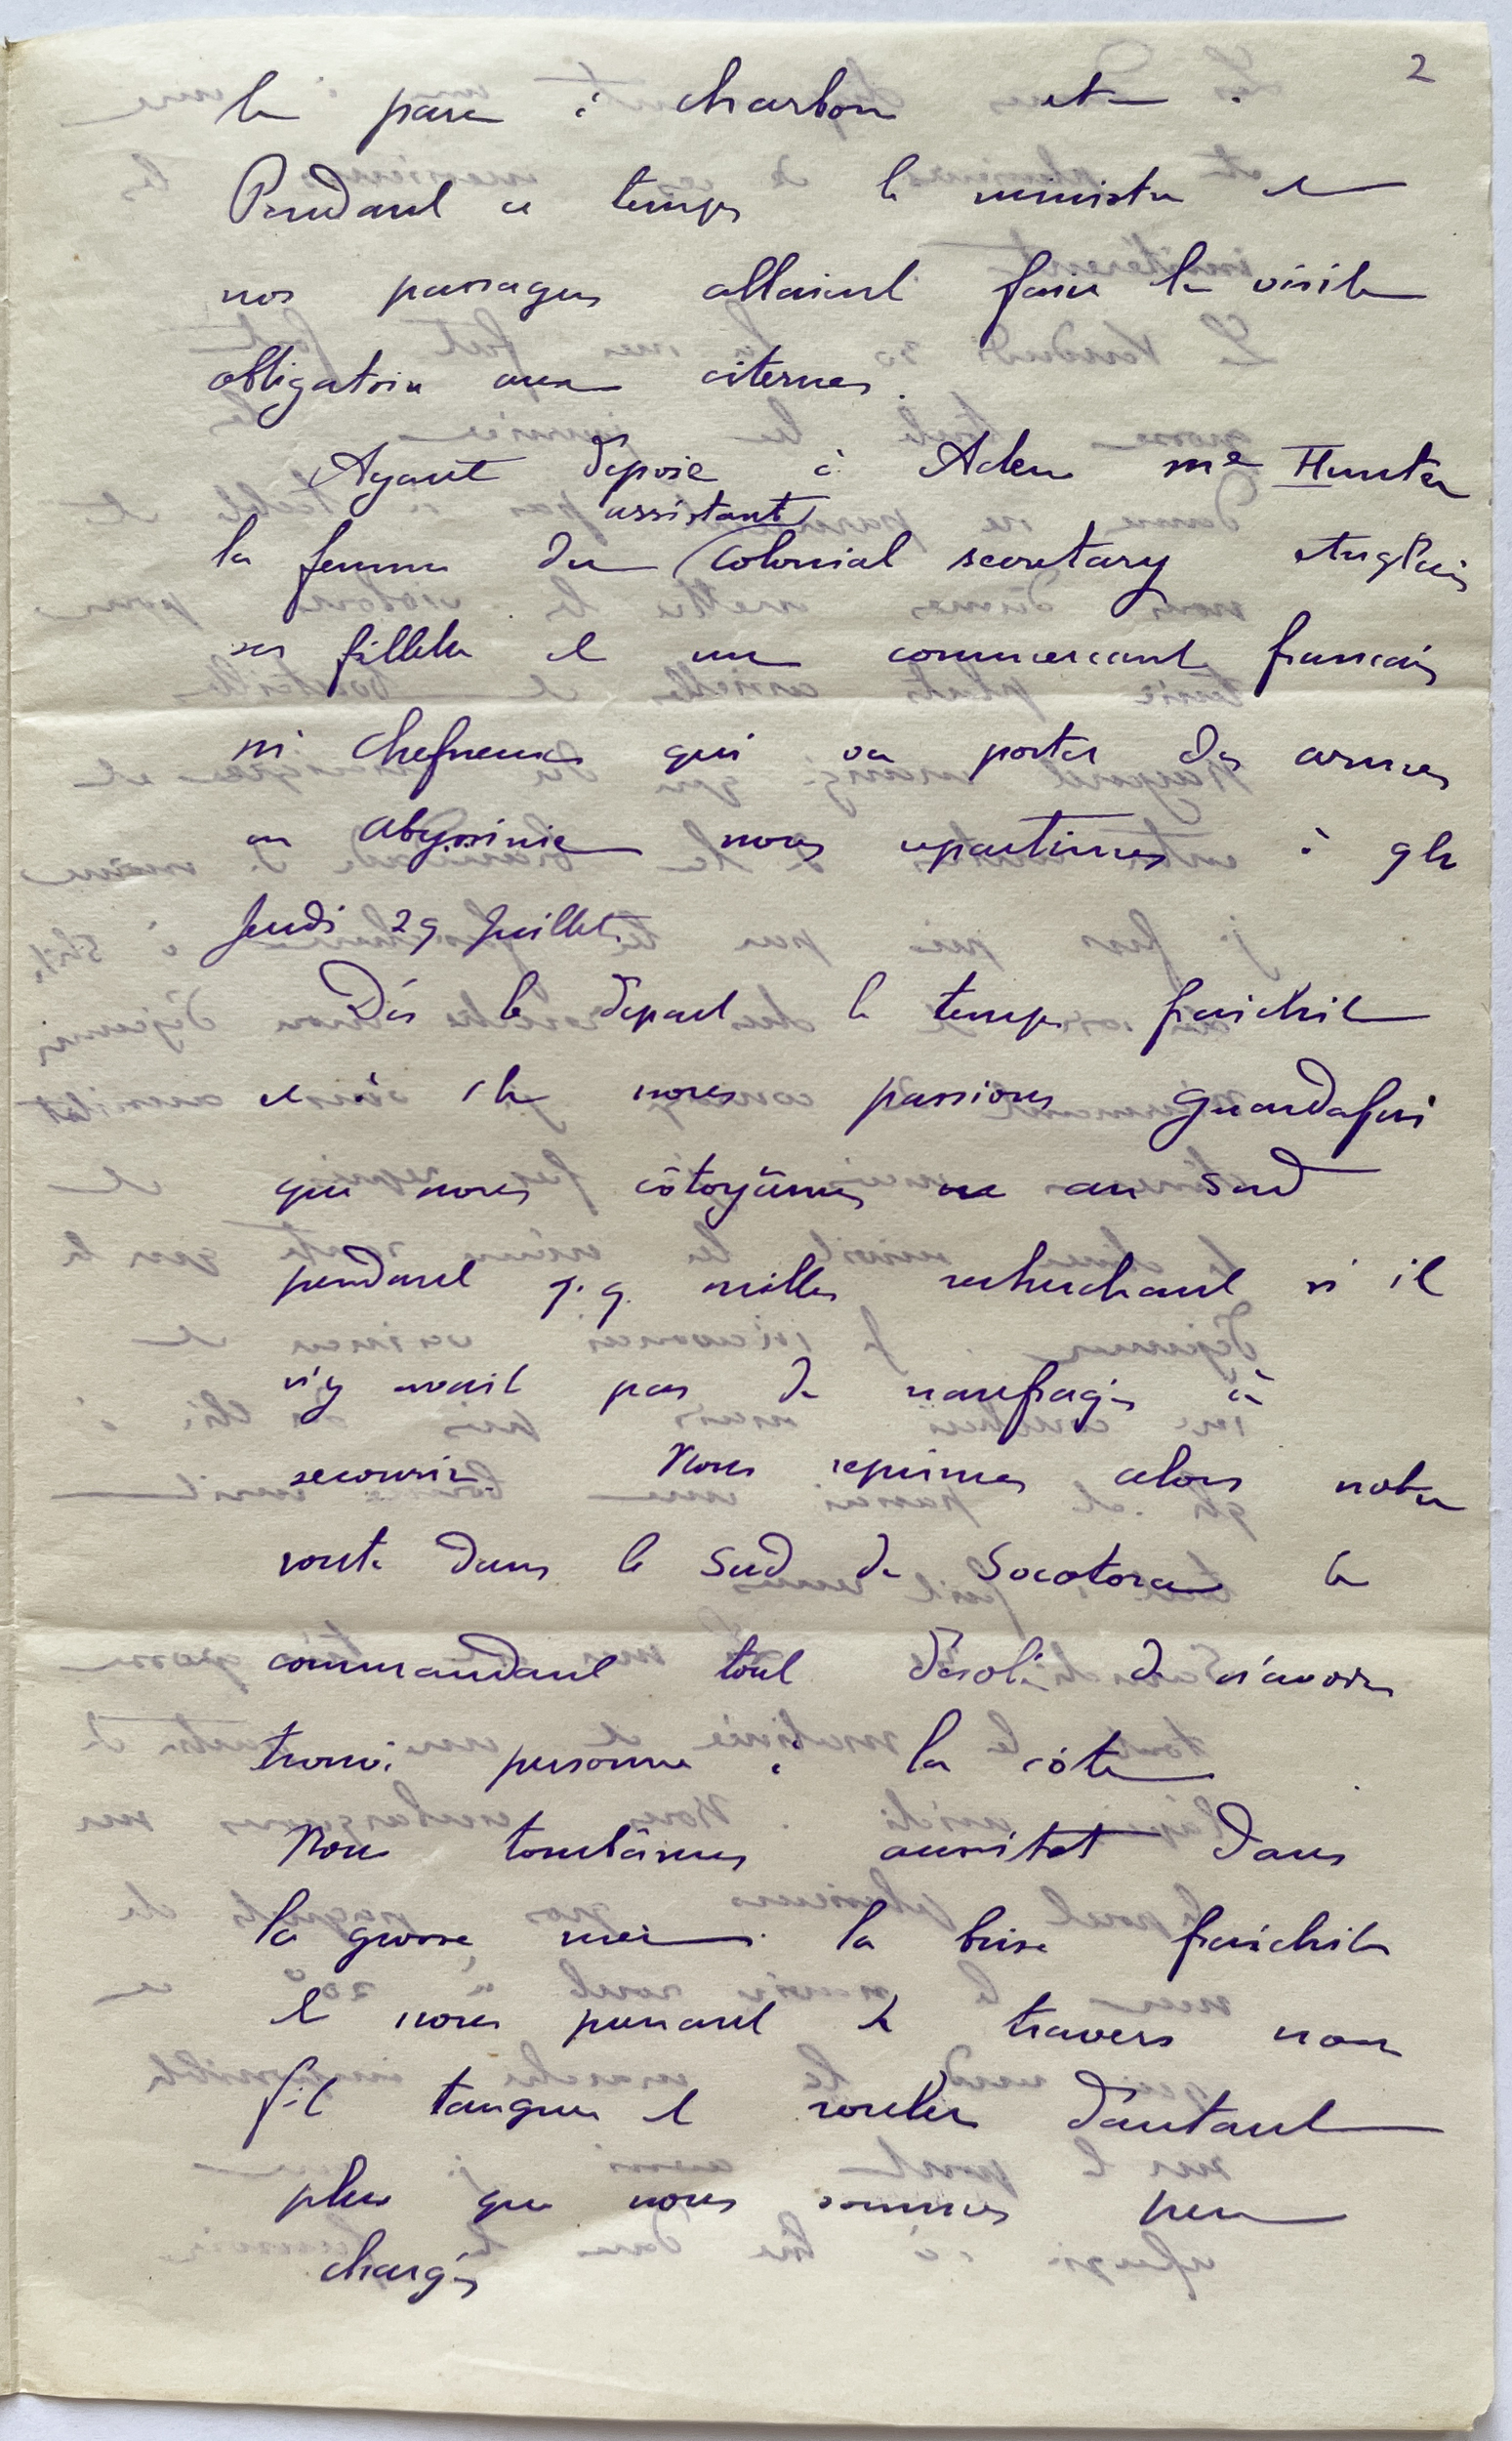 2
le parc à charbon etc.
Pendant ce temps le ministre et
nos passagers allaient faire la visite
obligatoire aux citernes.
Ayant déposé à Aden Me Hunter
assistant
la femme du Colonial secretary Anglais
ses fillettes et un commerçant français
M. Chefneux qui va porter des armes
en Abyssinie nous repartimes à 9h
Jeudi 29 Juillet.
Dès le départ le temps fraichit
et à 1h nous passions Guardafui
que nous côtoyâmes au Sud
pendant q.q. milles recherchant si il
n'y avait pas de naufragés à
secourir. Nous reprimes alors notre
route dans le Sud de Socotora le
commandant tout désolé de n'avoir
trouvé personne à la côte
Nous tombâmes aussitot dans
la grosse mer la brise fraichit
et nous prenant de travers nous
fit tanguer et rouler d'autant
plus que nous sommes peu
chargés